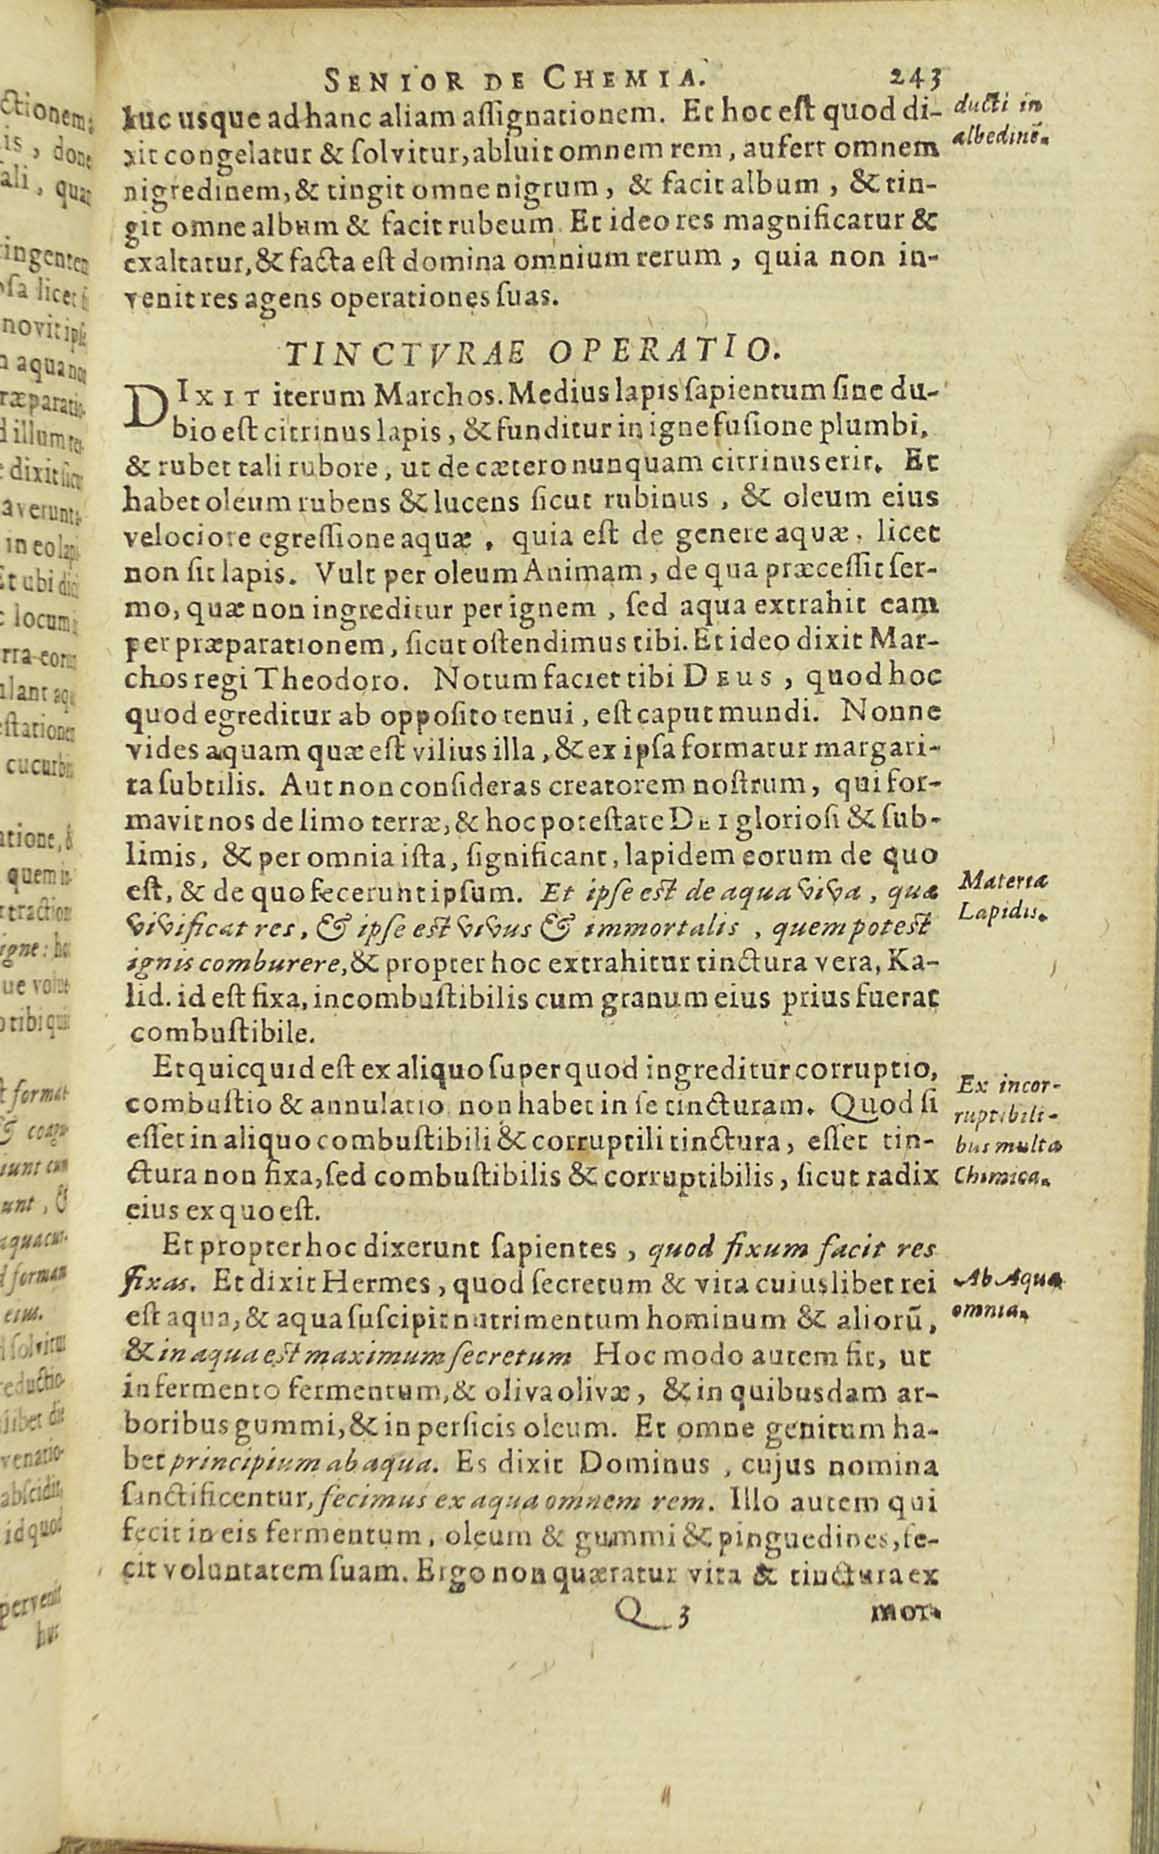 SENIOR DE CHEMIA. 243
huc usque ad hanc aliam assignationem. Et hoc est quod di-
xit congelatur & solvitur, abluit omnem rem, aufert omnem
nigredinem, & tingit omne nigrum, & facit album, & tin-
git omne album & facit rubeum. Et ideo res magnificatur &
exaltatur, & facta est domina omnium rerum, quia non in-
venit res agens operationes suas.
ducti in
albedinē.
TINCTVRAE OPERATIO.
DIXIT iterum Marchos. Medius lapis sapientum sine du-
bio est citrinus lapis, & funditur in igne fusione plumbi,
& rubet tali rubore, ut de cætero nunquam citrinus erit. Et
habet oleum rubens & lucens sicut rubinus, & oleum eius
velociore egressione aquæ, quia est de genere aquæ, licet
non sit lapis. Vult per oleum Animam, de qua præcessit ser-
mo, quæ non ingreditur per ignem, sed aqua extrahit eam
per præparationem, sicut ostendimus tibi. Et ideo dixit Mar-
chos regi Theodoro. Notum faciet tibi DEUS, quod hoc
quod egreditur ab opposito tenui, est caput mundi. Nonne
vides aquam quæ est vilius illa, & ex ipsa formatur margari-
ta subtilis. Aut non consideras creatorem nostrum, qui for-
mavit nos de limo terræ, & hoc potestate DEI gloriosi & sub-
limis, & per omnia ista, significant, lapidem eorum de quo
est, & de quo fecerunt ipsum. Et ipse est de aqua viva, quæ
vivificat res, & ipse est vivus & immortalis, quem potest
ignis comburere, & propter hoc extrahitur tinctura vera, Ka-
lid. id est fixa, incombustibilis cum granum eius prius fuerat
combustibile.
Materia
Lapidis.
Et quicquid est ex aliquo super quod ingreditur corruptio,
combustio & annulatio non habet in se tincturam. Quod si
esset in aliquo combustibili & corruptili tinctura, esset tin-
ctura non fixa, sed combustibilis & corruptibilis, sicut radix
eius ex quo est.
Ex incor-
ruptibili-
bus multa
Chimica.
Et propter hoc dixerunt sapientes, quod fixum facit res
fixas. Et dixit Hermes, quod secretum & vita cuiuslibet rei
est aqua, & aqua suscipit nutrimentum hominum & aliorū,
& in aqua est maximum secretum Hoc modo autem fit, ut
in fermento fermentum, & oliva olivæ, & in quibusdam ar-
boribus gummi, & in persicis oleum. Et omne genitum ha-
bet principium ab aqua. Es dixit Dominus, cujus nomina
sanctificentur, fecimus ex aqua omnem rem. Illo autem qui
fecit in eis fermentum, oleum & gummi & pinguedines, fe-
cit voluntatem suam. Ergo non quæratur vita & tinctura ex
Ab Aqua
omnia.
Q 3 mor-